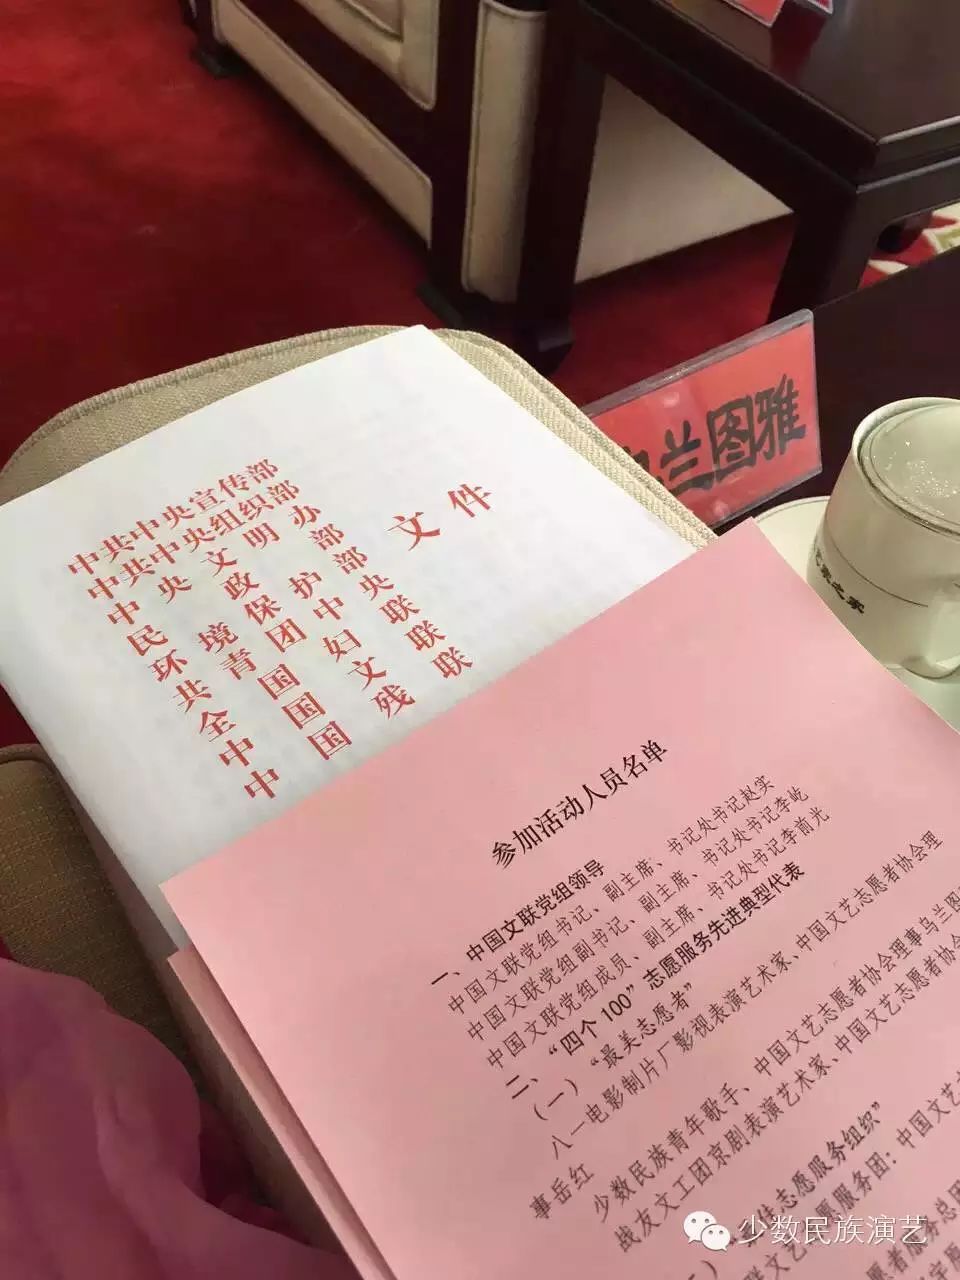 中共中央宣传部
中共中央组织部
中央文明办
民政部
环境保护部
共青团中央
全国妇联
中国文联
中国残联
文件
兰图雅
参加活动人员名单
一、中国文联党组领导
中国文联党组书记、副主席、书记处书记赵实
中国文联党组副书记、副主席、书记处书记李屹
中国文联党组成员、副主席、书记处书记李前光
二、“四个100”志愿服务先进典型代表
（一）“最美志愿者”
八一电影制片厂影视表演艺术家、中国文艺志愿者协会理
事岳红
少数民族青年歌手、中国文艺志愿者协会理事乌兰图
战友文工团京剧表演艺术家、中国文艺志愿者协会
志愿服务组织”
服务团：中国文艺
少数民族演艺